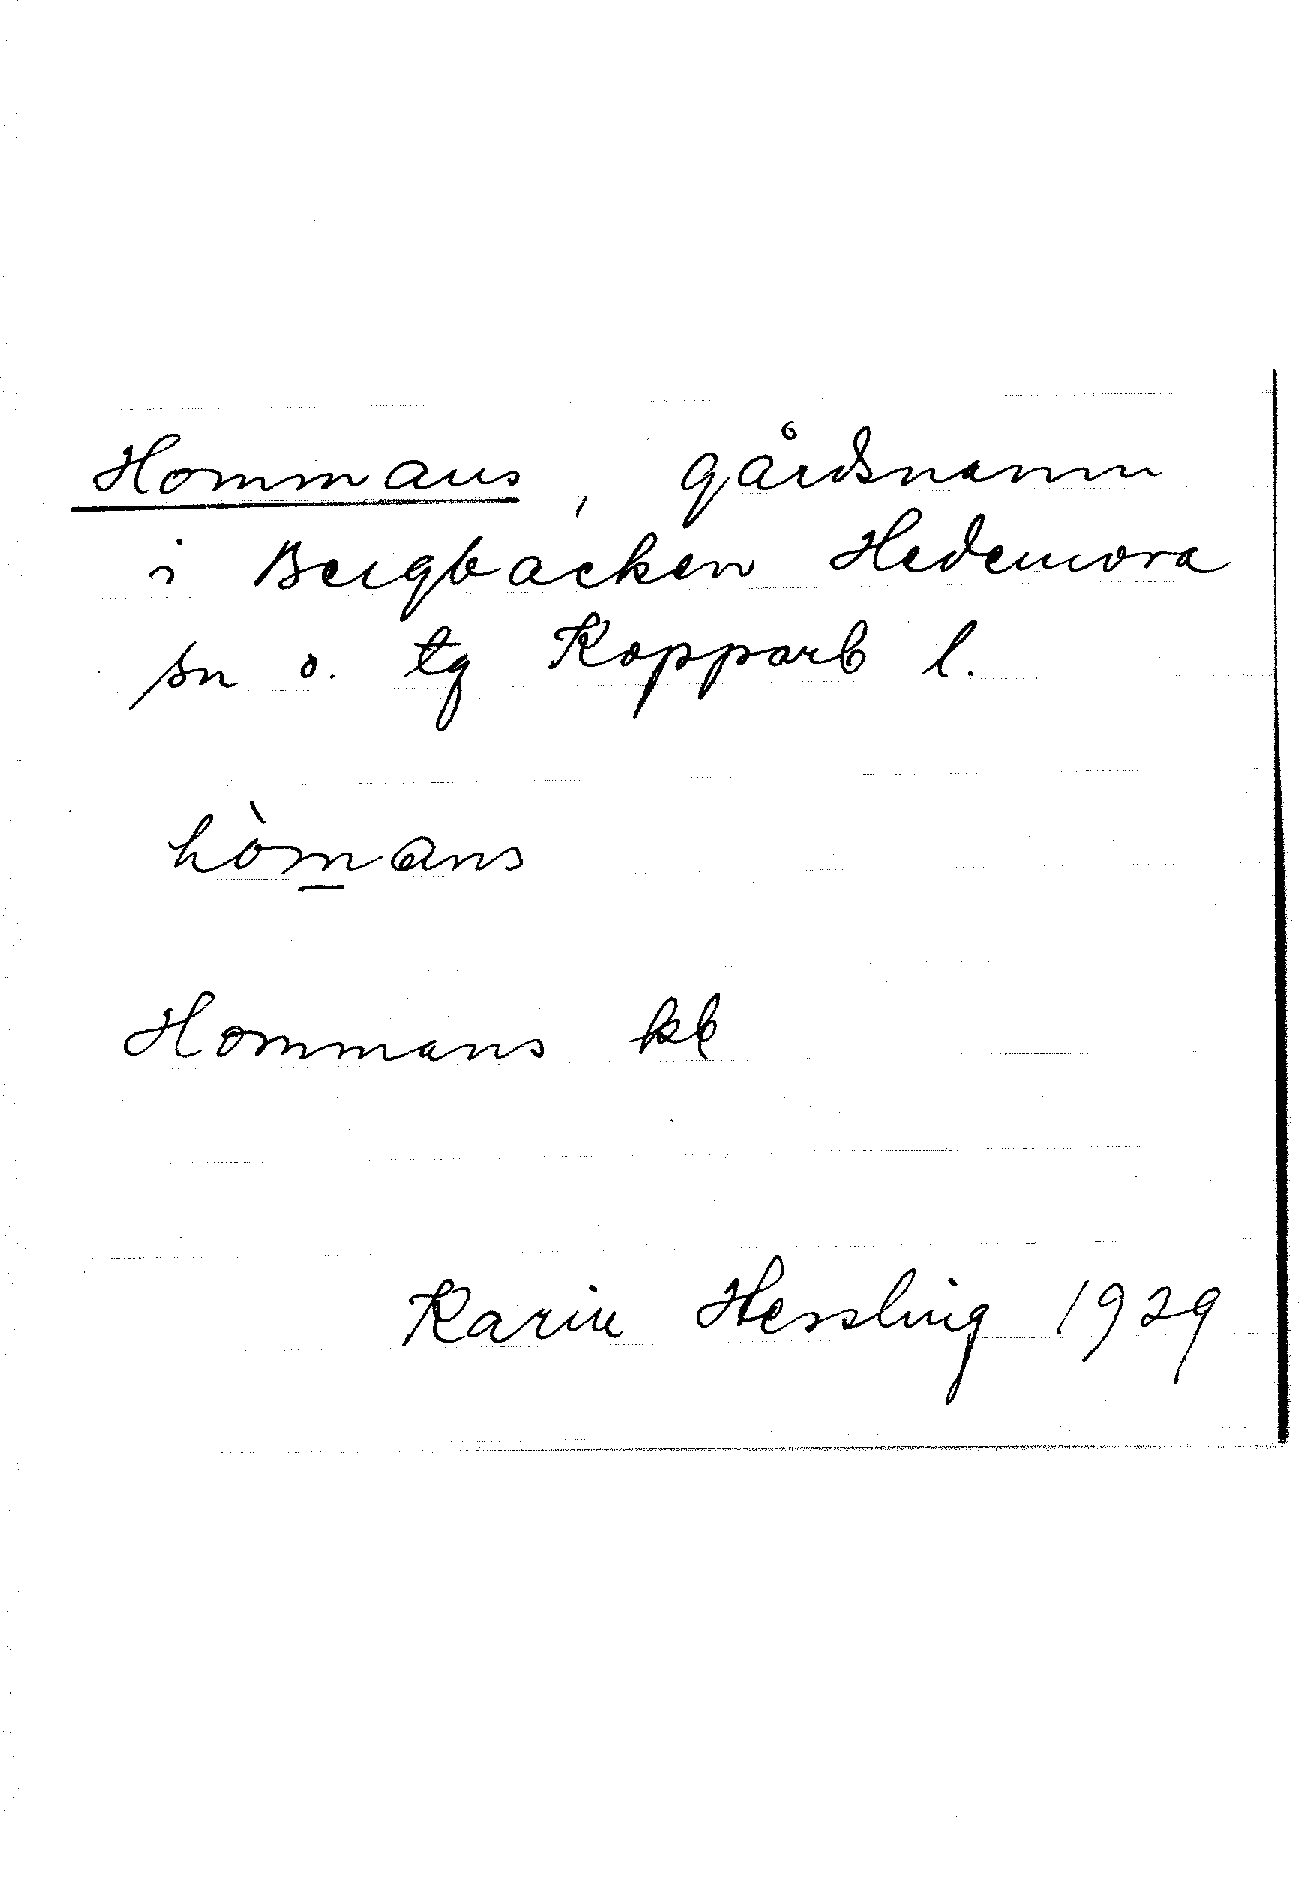 Hommans, gårdsnamn
i Bergbacken Hedemora
sn o. tg Kopparb l.
hòmans
Hommans kb
Karin Hessling 1929